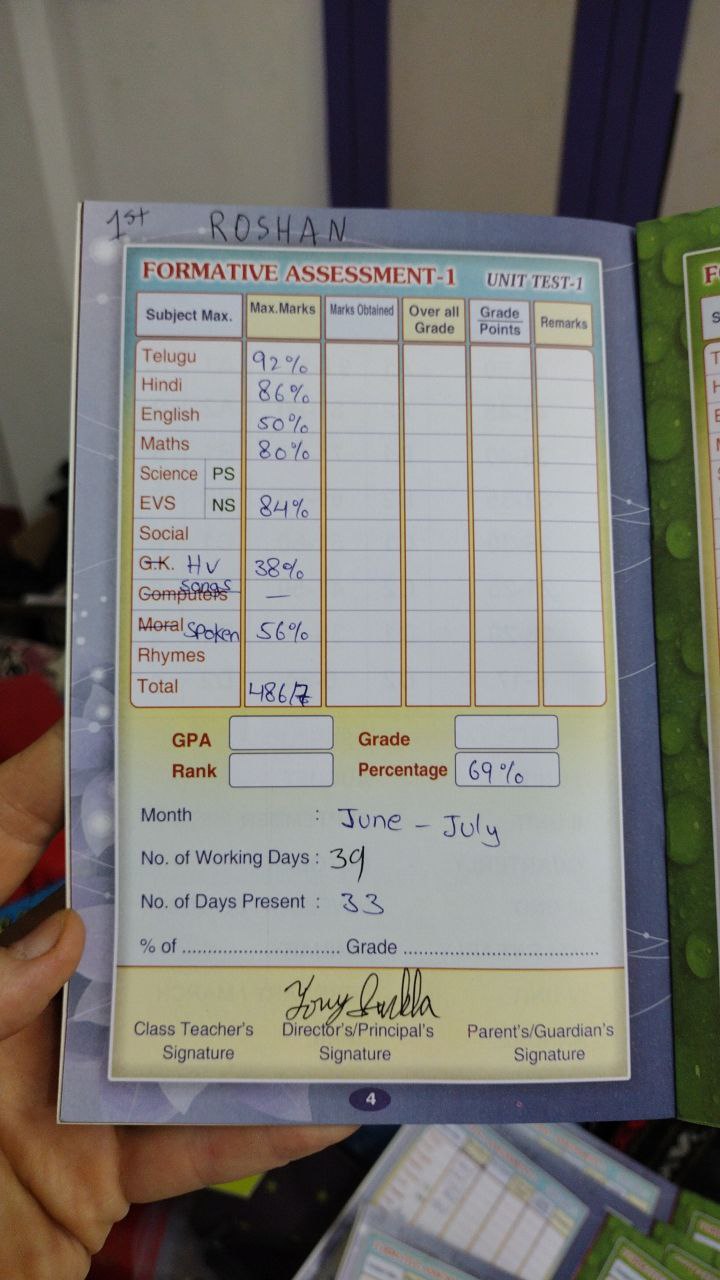 1st ROSHAN
FORMATIVE ASSESSMENT-1 UNIT TEST-1
Subject Max. Max.Marks Marks Obtained Over all Grade Grade Points Remarks
Telugu 92%
Hindi 86%
English 50%
Maths 80%
Science PS
EVS NS 84%
Social
G.K. HV 38%
Computers songs —
Moral Spoken 56%
Rhymes
Total 486/7
GPA Grade
Rank Percentage 69%
Month : June - July
No. of Working Days : 39
No. of Days Present : 33
% of ................................ Grade .......................................
Class Teacher's Signature Director's/Principal's Signature Parent's/Guardian's Signature
4